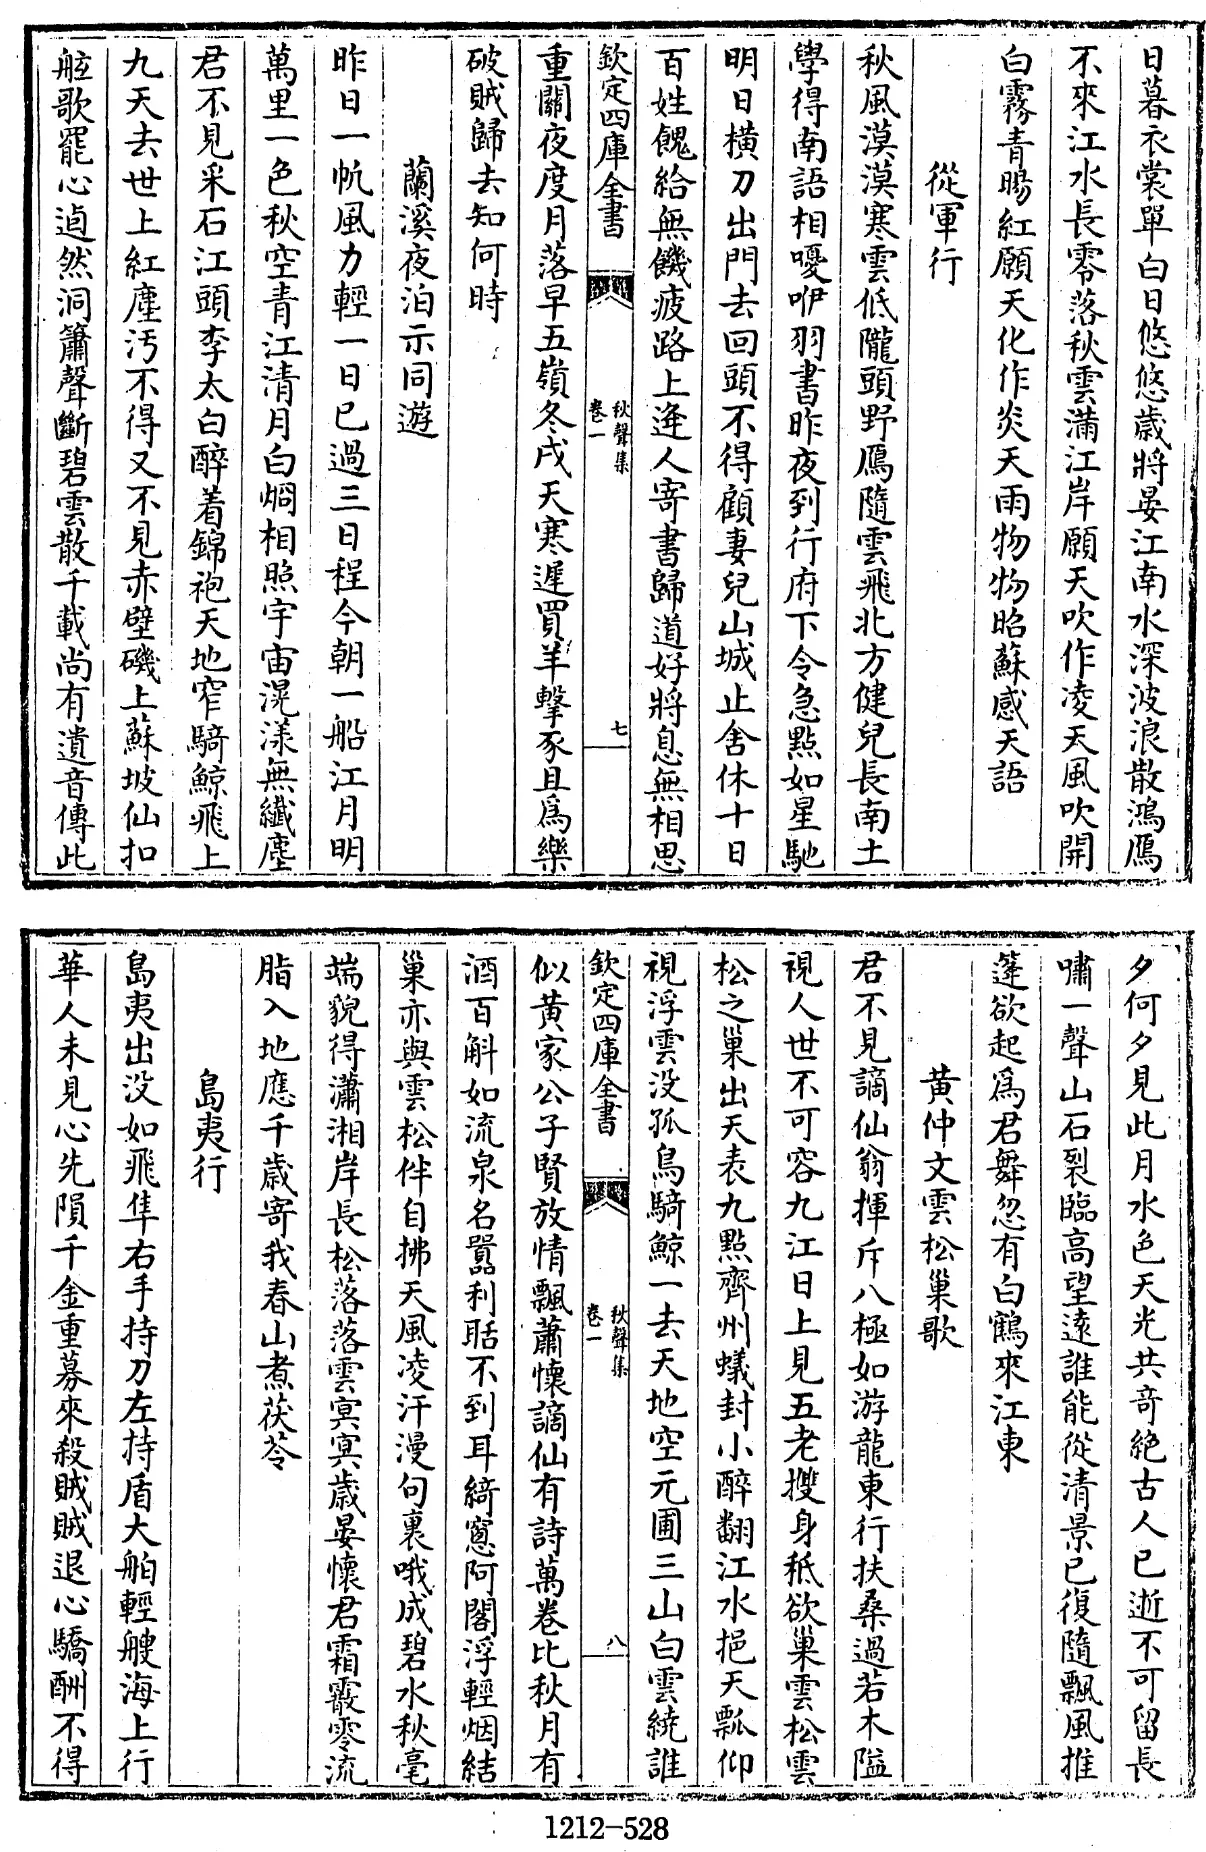 日暮衣裳單白日悠悠歲將晏江南水深波浪散鴻鴈
不來江水長零落秋雲滿江岸願天吹作凌天風吹開
白霧青暘紅願天化作炎天雨物物昭蘇感天語
從軍行
秋風漠漠寒雲低隴頭野鴈隨雲飛北方健兒長南土
學得南語相嚘咿羽書昨夜到行府下令急點如星馳
明日橫刀出門去回頭不得顧妻兒山城止舍休十日
百姓餽給無饑疲路上逢人寄書歸道好將息無相思
欽定四庫全書
秋聲集
卷一
七
重關夜度月落早五嶺冬戍天寒遲買羊擊豕且為樂
破賊歸去知何時
蘭溪夜泊示同遊
昨日一帆風力輕一日已過三日程今朝一船江月明
萬里一色秋空青江清月白烱相照宇宙滉漾無纖塵
君不見采石江頭李太白醉着錦袍天地窄騎鯨飛上
九天去世上紅塵汚不得又不見赤壁磯上蘇坡仙扣
舷歌罷心逌然洞簫聲斷碧雲散千載尚有遺音傳此
夕何夕見此月水色天光共奇絶古人已逝不可留長
嘯一聲山石裂臨高望遠誰能從清景已復隨飄風推
篷欲起爲君舞忽有白鶴來江東
黄仲文雲松巢歌
君不見謫仙翁揮斥八極如游龍東行扶桑過若木隘
視人世不可容九江日上見五老擭身秖欲巢雲松雲
松之巢出天表九點齊州蟻封小醉翻江水挹天瓢仰
視浮雲没孤鳥騎鯨一去天地空元圃三山白雲繞誰
欽定四庫全書
秋聲集
卷一
八
似黄家公子賢放情飄蕭懷謫仙有詩萬卷比秋月有
酒百斛如流泉名囂利聒不到耳綺窻阿閣浮輕烟結
巢亦與雲松伴自拂天風凌汗漫句裏哦成碧水秋毫
端貌得瀟湘岸長松落落雲㝠㝠歲晏懷君霜霰零流
脂入地應千歲寄我春山煮茯苓
島夷行
島夷出没如飛隼右手持刀左持盾大舶輕艘海上行
華人未見心先隕千金重募來殺賊賊退心驕酬不得
1212-528